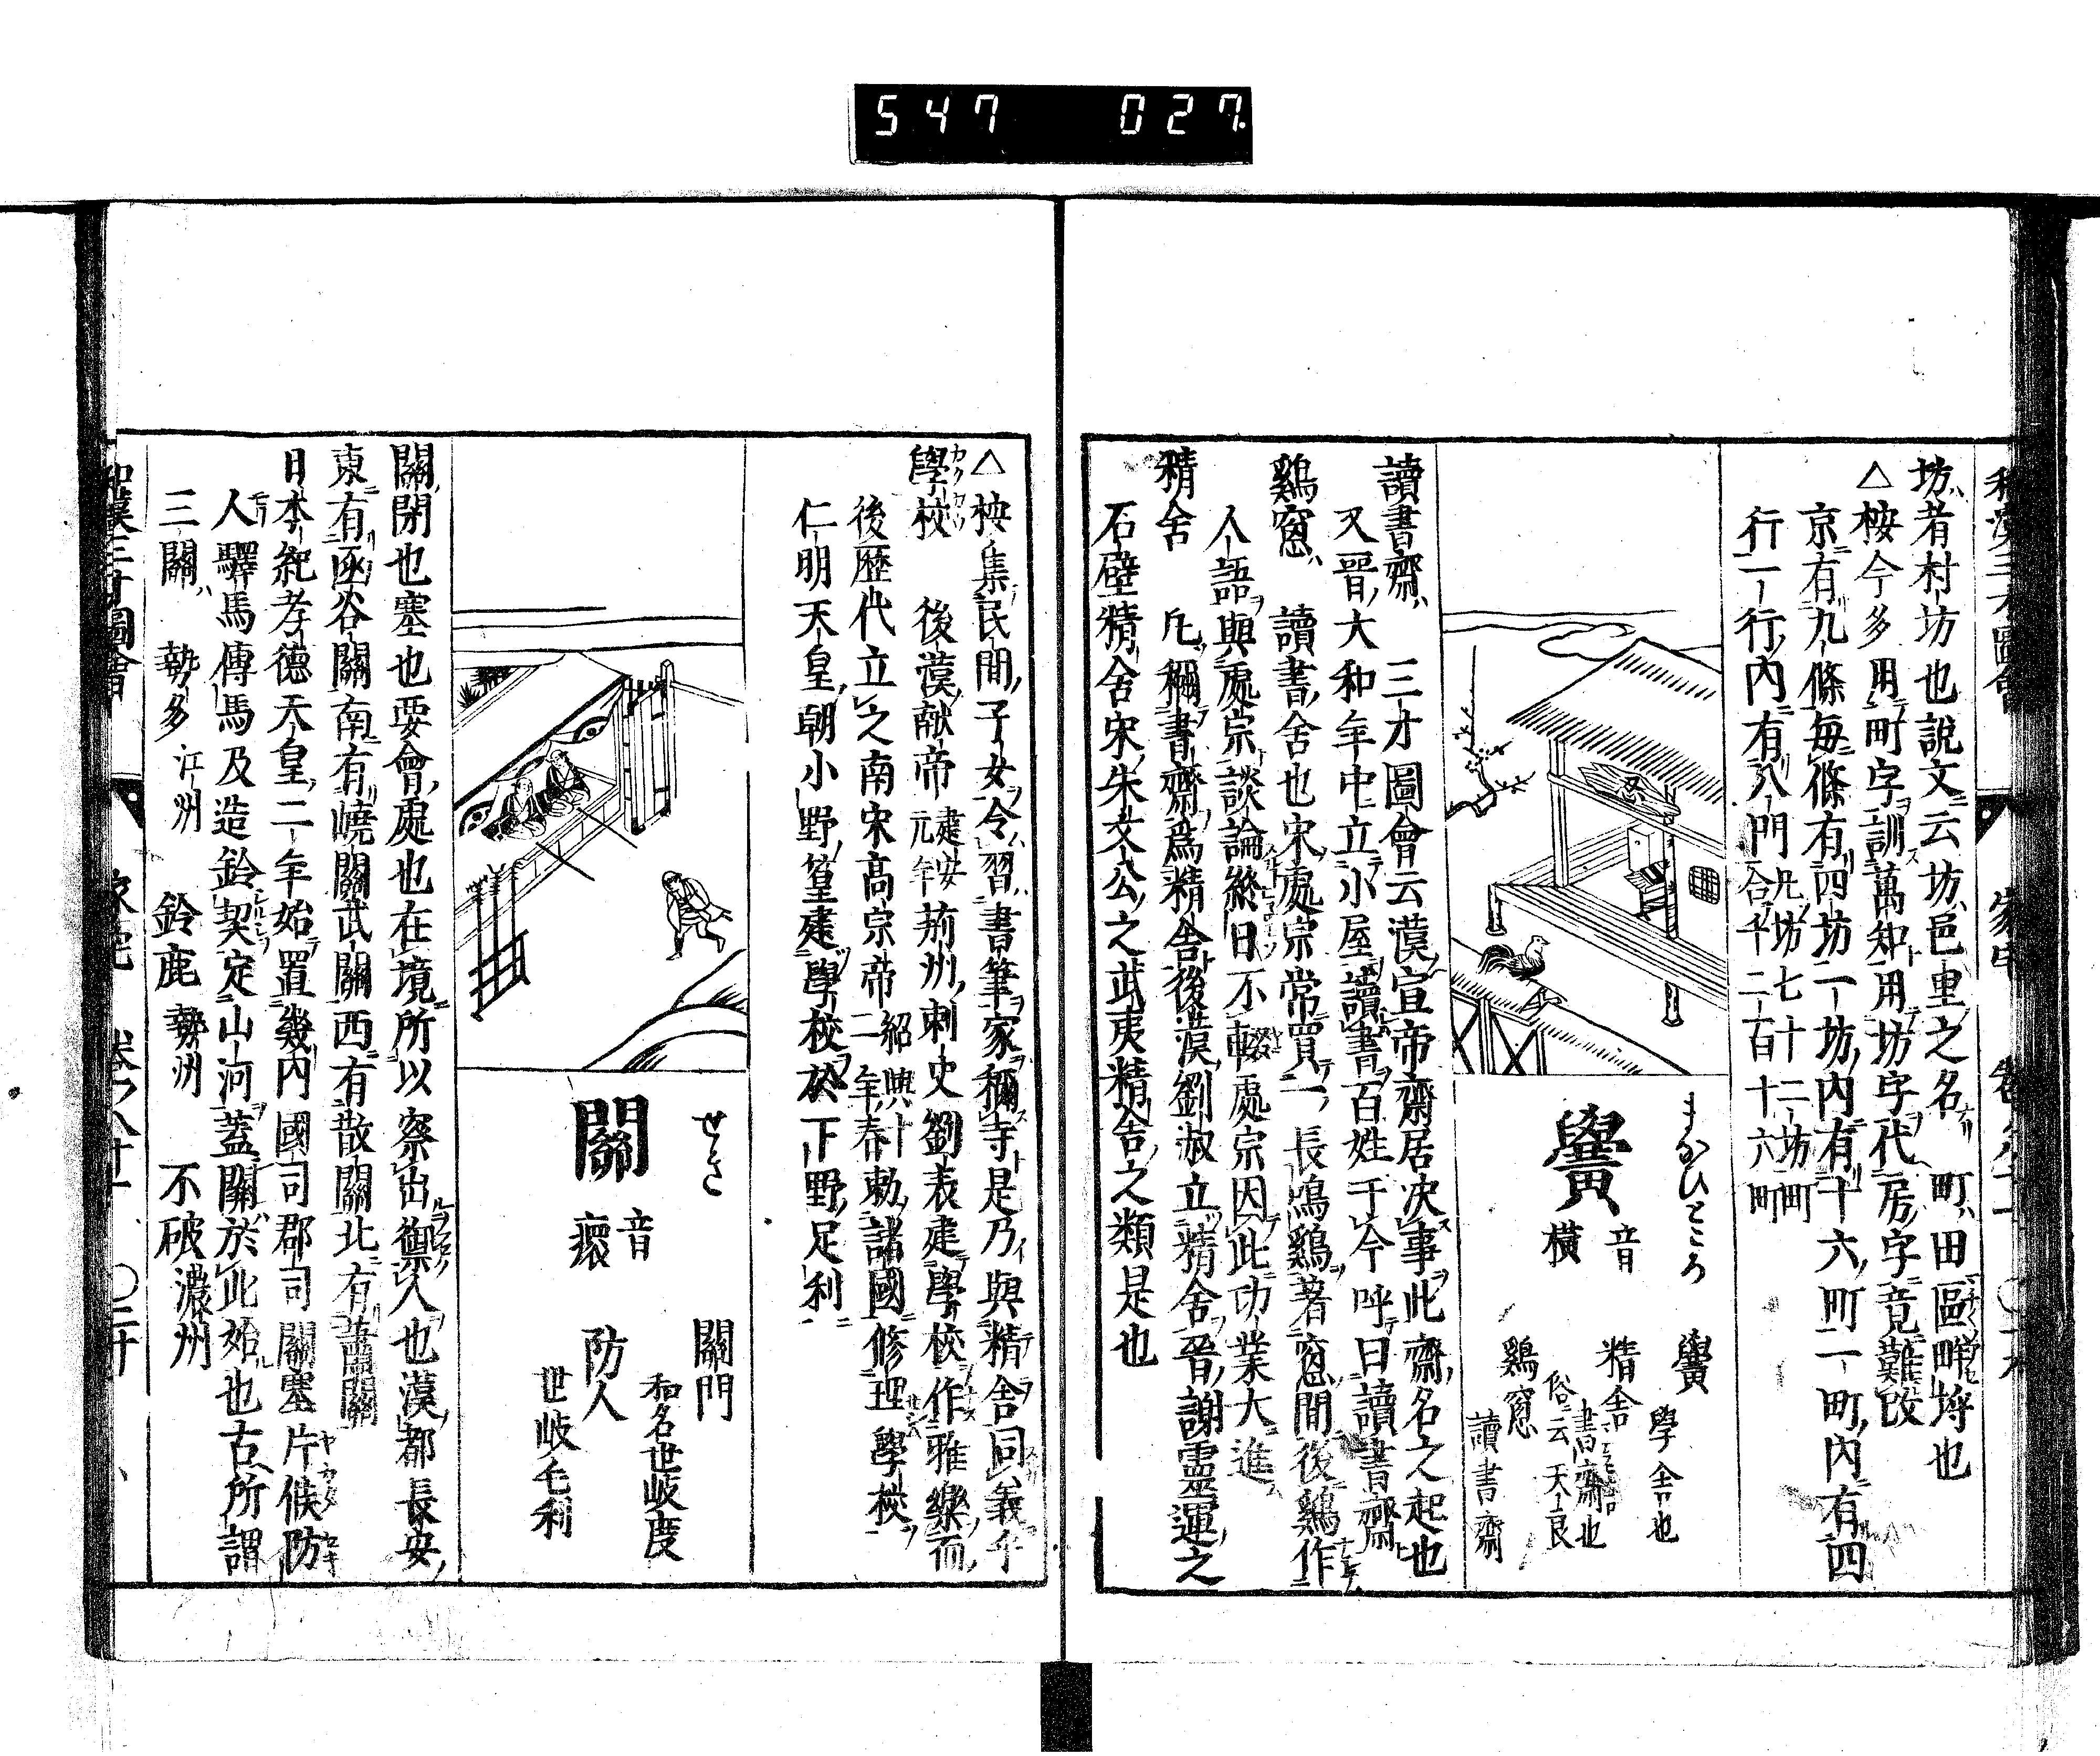 547 027
坊者村坊也說文云坊邑里之名 町田區畔埒也
△桉今多用町字訓萬知用坊字代房字竟難改
京有九條每條有四坊一坊內有十六町一町內有四
行一行內有八門凡坊七十二坊町合千二百十六町
まなひところ
黌
音橫
黌
學舍也
精舍
書齋也
俗云天良
鷄窓
讀書齋
讀書齋 三才圖會云漢宣帝齋居决事此齋名之起也
又晋大和年中立小屋讀書百姓于今呼曰讀書齋
鷄窓 讀書舍也宋處宗常買一長鳴鷄著窓間後鷄作
人語與處宗談論終日不輟處宗因此功業大進
精舍 凡稱書齋爲精舍後漢劉淑立精舍晉謝靈運之
石壁精舍宋朱文公之武夷精舍之類是也
△桉集民間子女令習書筆家稱寺是乃與精舍同義乎
學校 後漢献帝建安元年荊州刺史劉表建學校作雅樂而
後歷代立之南宋高宗帝紹興十二年春勅諸國修理學校
仁明天皇朝小野篁建學校於下野足利
せき
關
音𤸷
關門
和名世岐度
防人
世岐毛利
關閉也塞也要會處也在境所以察出禦入也漢都長安
東有函谷關南有嶢關武關西有散關北有蕭關
日本紀孝德天皇二年始置畿內國司郡司關塞斥候防
人驛馬傳馬及造鈴契定山河蓋關於此始也古所謂
三關 勢多江州 鈴鹿勢州 不破濃州
和漢三才圖會 家宅 卷之八十一 〇二十